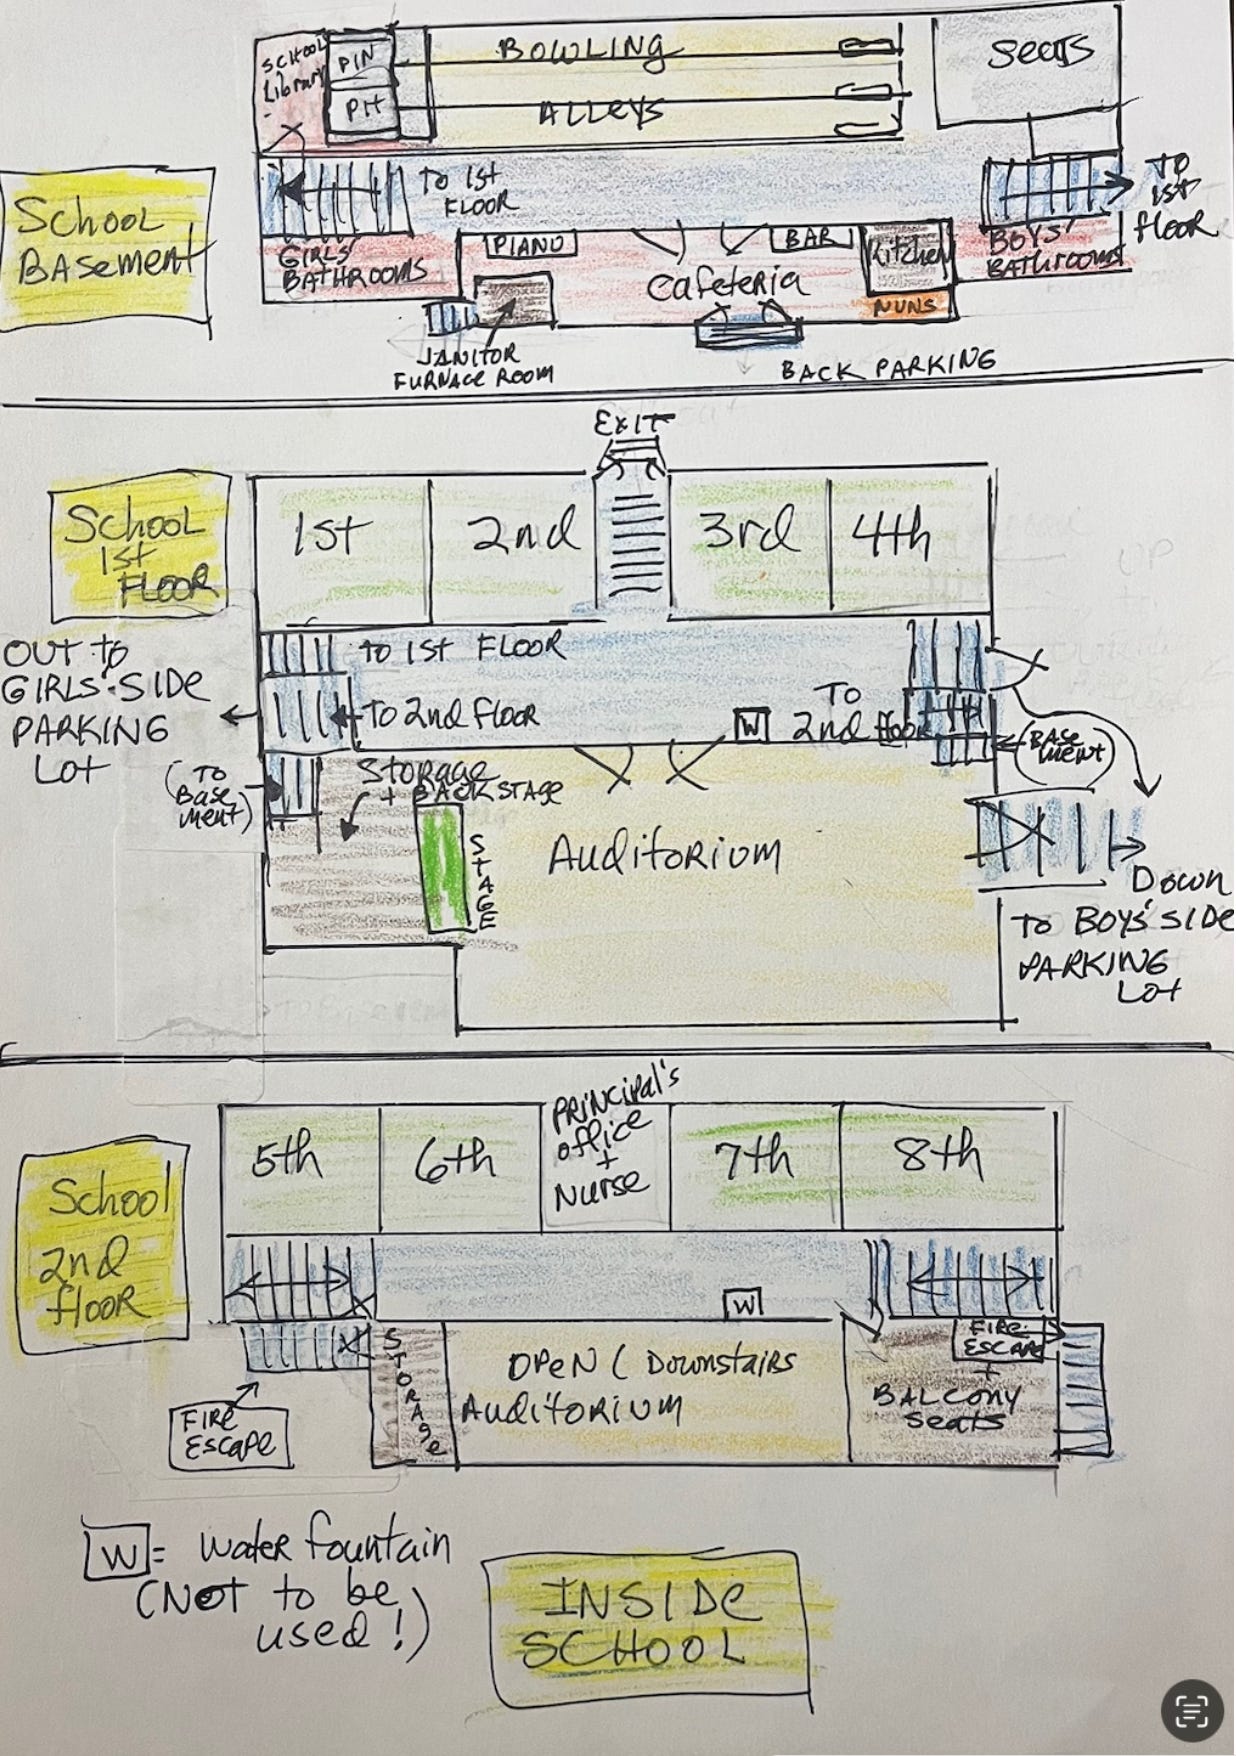 School
Library
PIN
PIT
BOWLING
ALLEYS
Seats
School
Basement
To 1st
Floor
To
1st
floor
GIRLS'
BATHROOMS
PIANO
BAR
Kitchen
BOYS'
BATHROOMS
Cafeteria
NUNS
JANITOR
FURNACE ROOM
BACK PARKING
EXIT
School
1st
FLOOR
1st
2nd
3rd
4th
OUT to
GIRLS' SIDE
PARKING
Lot
To 1st FLOOR
To 2nd floor
W
To
2nd floor
(Base
ment)
(To
Base
ment)
Storage
+ BACKSTAGE
STAGE
Auditorium
Down
To BOYS' SIDE
PARKING
Lot
School
2nd
floor
5th
6th
PRINCIPAL'S
office
+
Nurse
7th
8th
W
STORAGE
OPEN (Downstairs
Auditorium
FIRE
ESCAPE
+
BALCONY
Seats
FIRE
ESCAPE
W = Water fountain
(NOT to be
used!)
INSIDE
SCHOOL